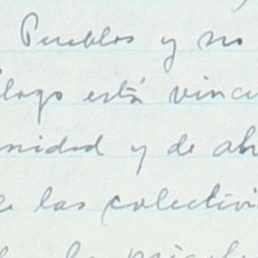 Pueblos y no
logo está vincu
nidad y de ah
e las colectivi